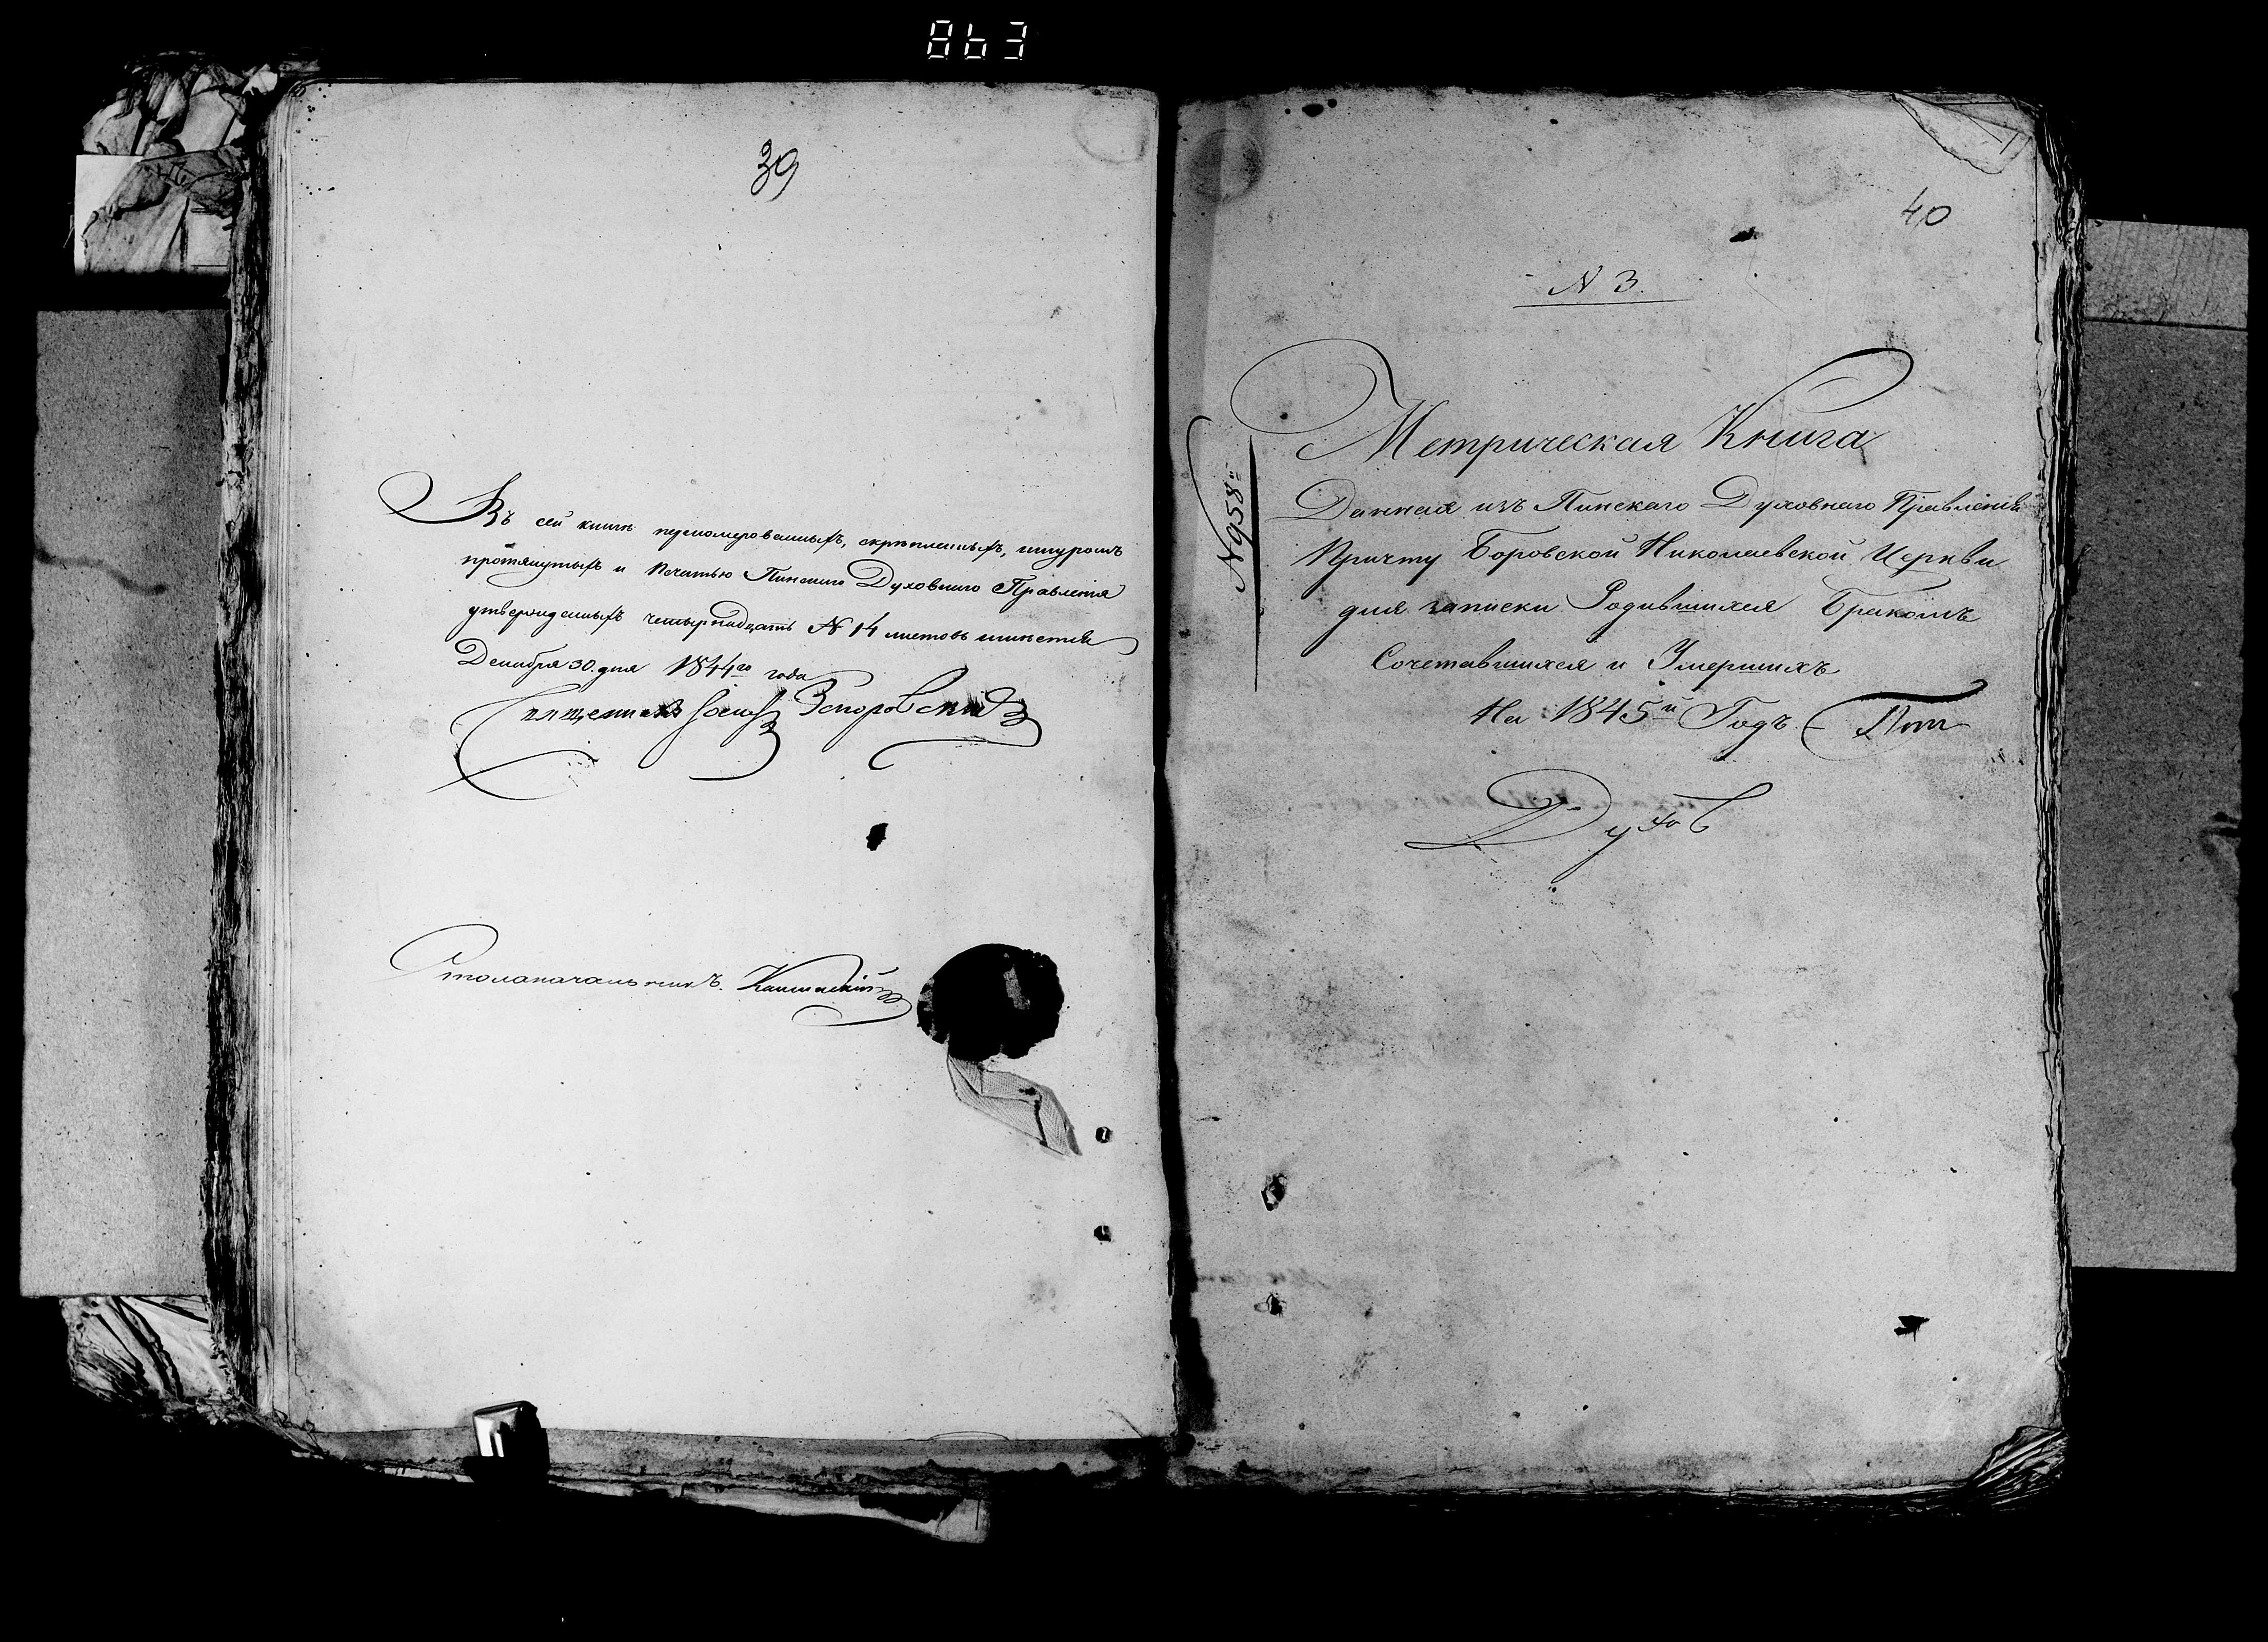 863
39
Въ сей книгѣ перенумерованныхъ, скрѣпленныхъ, шнуромъ
протянутыхъ и Печатью Пинскаго Духовнаго Правленія
утвержденныхъ четырнадцать № 14 листовъ имѣется
Декабря 30. дня 1844го года
Священникъ Іосифъ
Столоначальникъ.
40
N 3.
N 958
Метрическая Книга
Данная изъ Пинскаго Духовнаго Правленія
Причту Боровской Николаевской Церкви
для записки Родившихся Бракомъ
Сочетавшихся и Умершихъ
На 1845й Годъ.
Духов